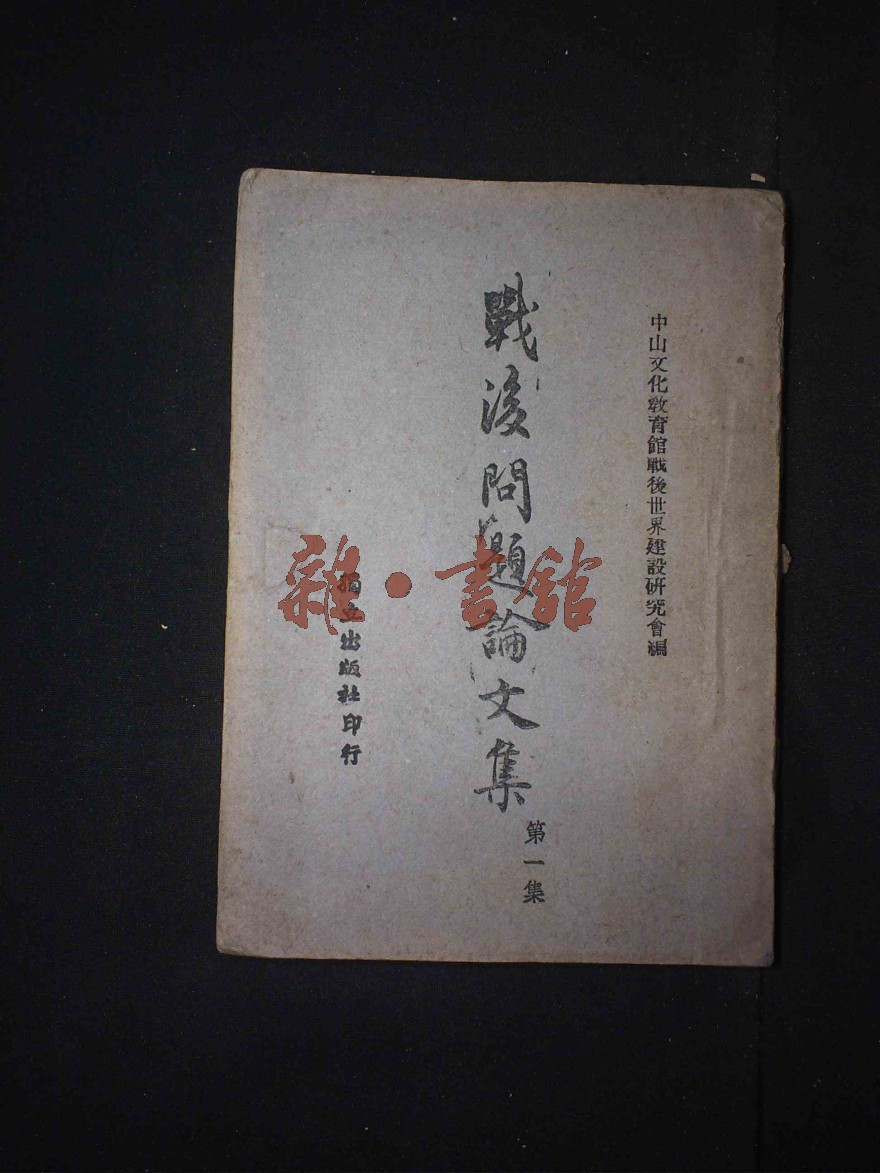 中山文化教育館戰後世界建設研究會編
戰後問題論文集
第一集
獨立出版社印行
雜·書館